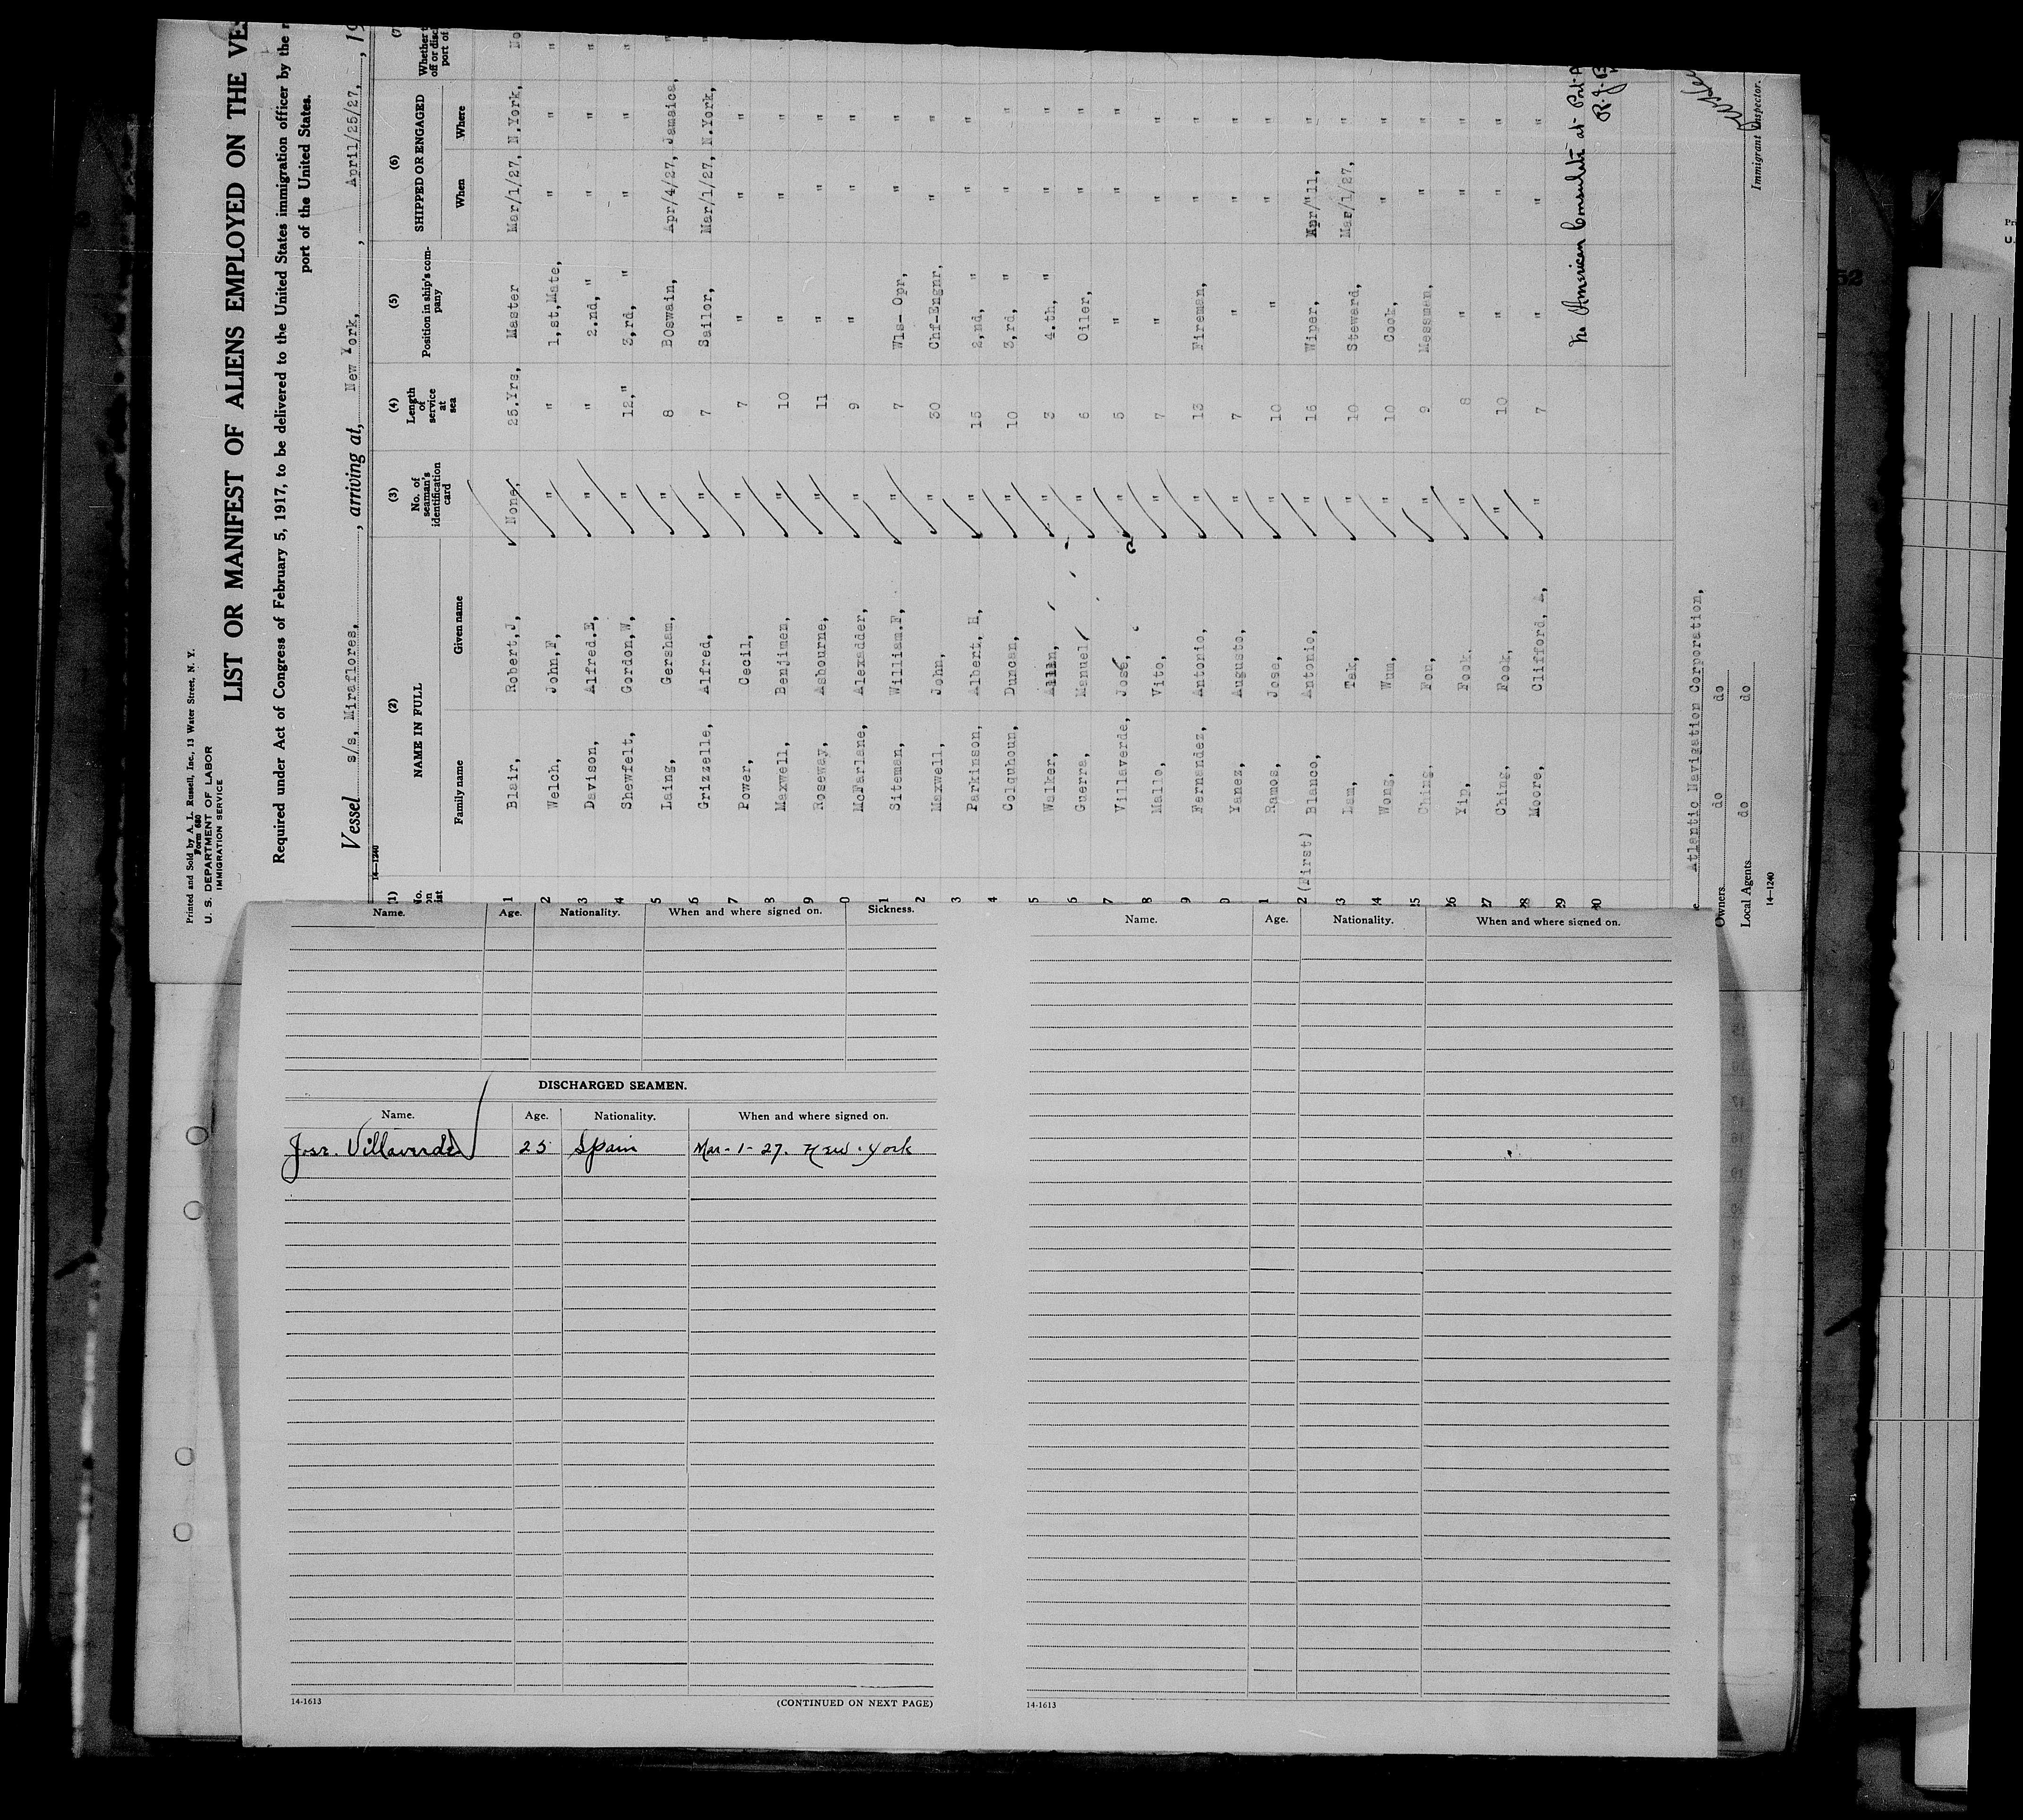 Printed and Sold by A. L. Russell, Inc., 13 Water Street, N. Y.
Form 680
U. S. DEPARTMENT OF LABOR
IMMIGRATION SERVICE
LIST OR MANIFEST OF ALIENS EMPLOYED ON THE VES
Required under Act of Congress of February 5, 1917, to be delivered to the United States immigration officer by the
port of the United States.
Vessel s/s, Miraflores, , arriving at, New York, , April/25/27, , 19
14—1240
(2) (3) (4) (5) (6) (7
NAME IN FULL No. of seaman's identification card Length of service at sea Position in ship's company SHIPPED OR ENGAGED
Family name Given name When Where
1 Blair, Robert,J, None, 25.Yrs, Master Mar/1/27, N.York, No
2 Welch, John,F, " " 1,st,Mate, " " "
3 Davison, Alfred.E, " " 2.nd, " " " "
4 Shewfelt, Gordon,W, " 12," 3,rd, " " " "
5 Laing, Gersham, " 8 BOswain, Apr/4/27, Jamaica, "
6 Grizzelle, Alfred, " 7 Sailor, Mar/1/27, N.York, "
7 Power, Cecil, " 7 " " "
8 Maxwell, Benjimen, " 10 " " "
9 Roseway, Asbourne, " 11 " " "
0 McFarlane, Alexadder, " 9 " " "
1 Siteman, William.F, " 7 Wls- Opr, " "
2 Maxwell, John, " 30 Chf-Engnr, " "
3 Parkinson, Albert, H, " 15 2,nd, " " "
4 Colquhoun, Duncan, " 10 3,rd, " " "
5 Walker, Allan, " 3 4.th, " " "
6 Guerra, Manuel, " 6 Oiler, " "
7 Villaverde, José, " 5 " " "
8 Mallo, Vito, " 7 " " "
9 Fernandez, Antonio, " 13 Fireman, " "
0 Yanez, Augusto, " 7 " " "
1 Ramos, Jose, " 10 " " "
2 (First) Blanco, Antonio, " 16 Wiper, Apr/"11, "
3 Lam, Tak, " 10 Steward, Mar/1/27, "
24 Wong, Wum, " 10 Cook, " "
25 Ching, Fon, " 9 Messman, " "
26 Yip, Fook. " 8 " " "
27 Ching, Fook, " 10 " " "
28 Moore, Clifford, A, " 7 " " "
29
30
No American Consulate at Port
Atlantic Navigation Corporation,
Owners do do
Local Agents do do
14—1240
Immigrant Inspector.
Name. Age. Nationality. When and where signed on. Sickness.
DISCHARGED SEAMEN.
Name. Age. Nationality. When and where signed on.
Jose Villaverde 25 Spain Mar-1-27. New York
14-1613 (CONTINUED ON NEXT PAGE)
Name. Age. Nationality. When and where signed on.
14-1613